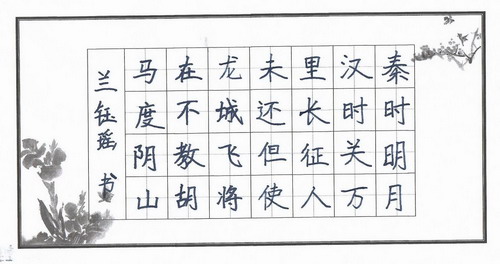 秦时明月
汉时关万
里长征人
未还但使
龙城飞将
在不教胡
马度阴山
兰钰瑶 书